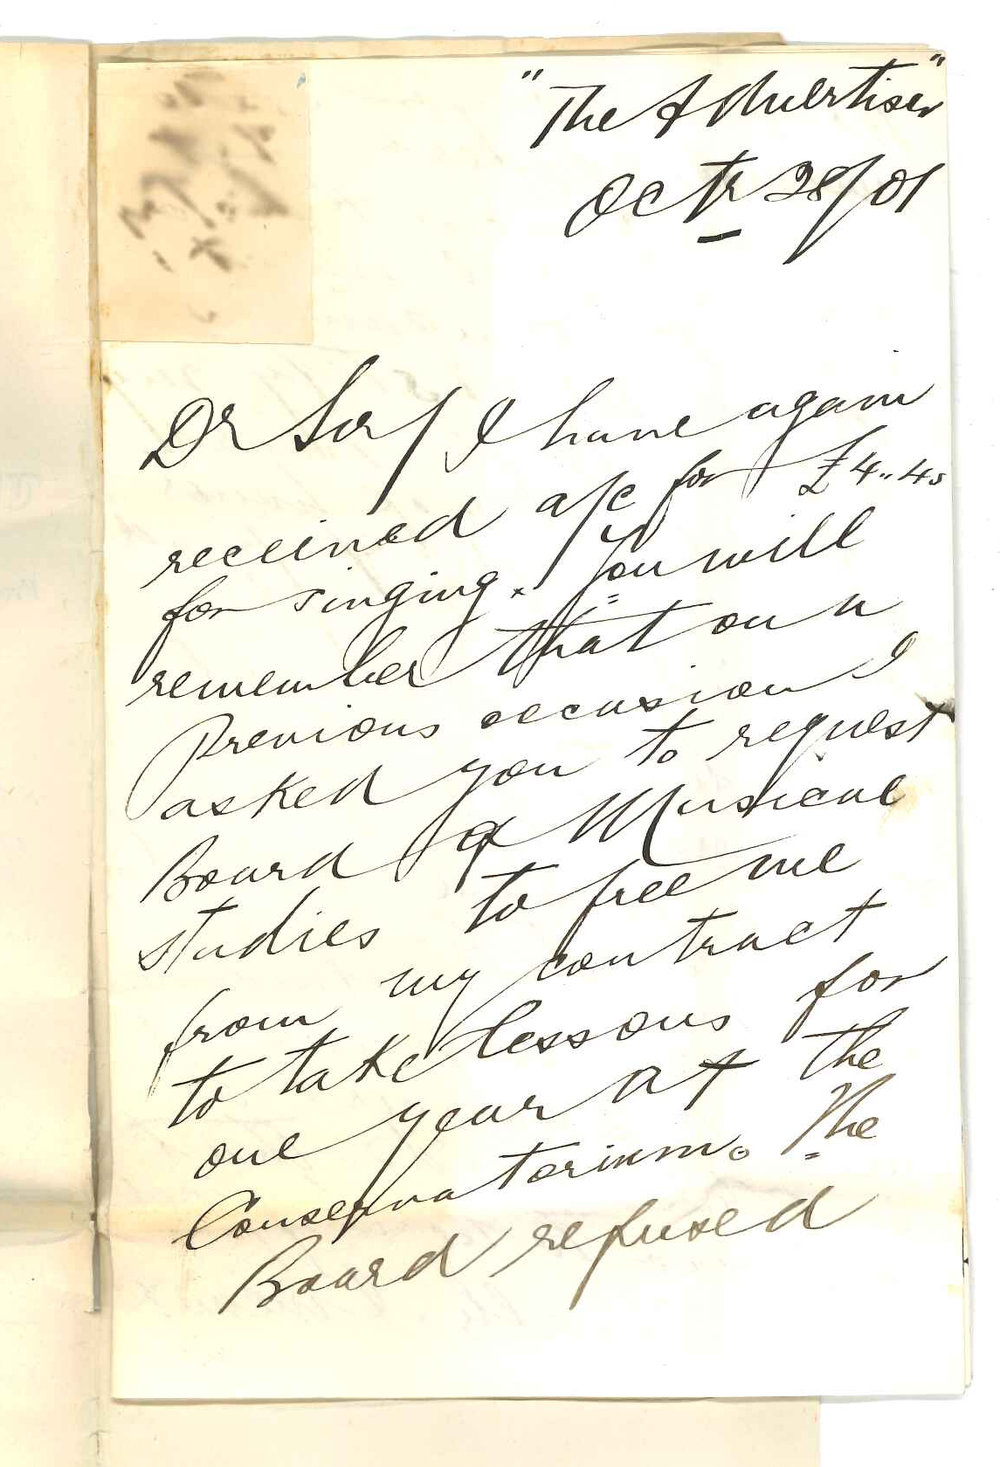 "The Advertiser"
Octr 28/01
Dr Sir/ I have again
received a/c for £4..4s
for singing. You will
remember that on a
previous occasion I
asked you to request
Board of Musical
studies to free me
from my contract
to take lessons for
one year at the
Conservatorium. The
Board refused